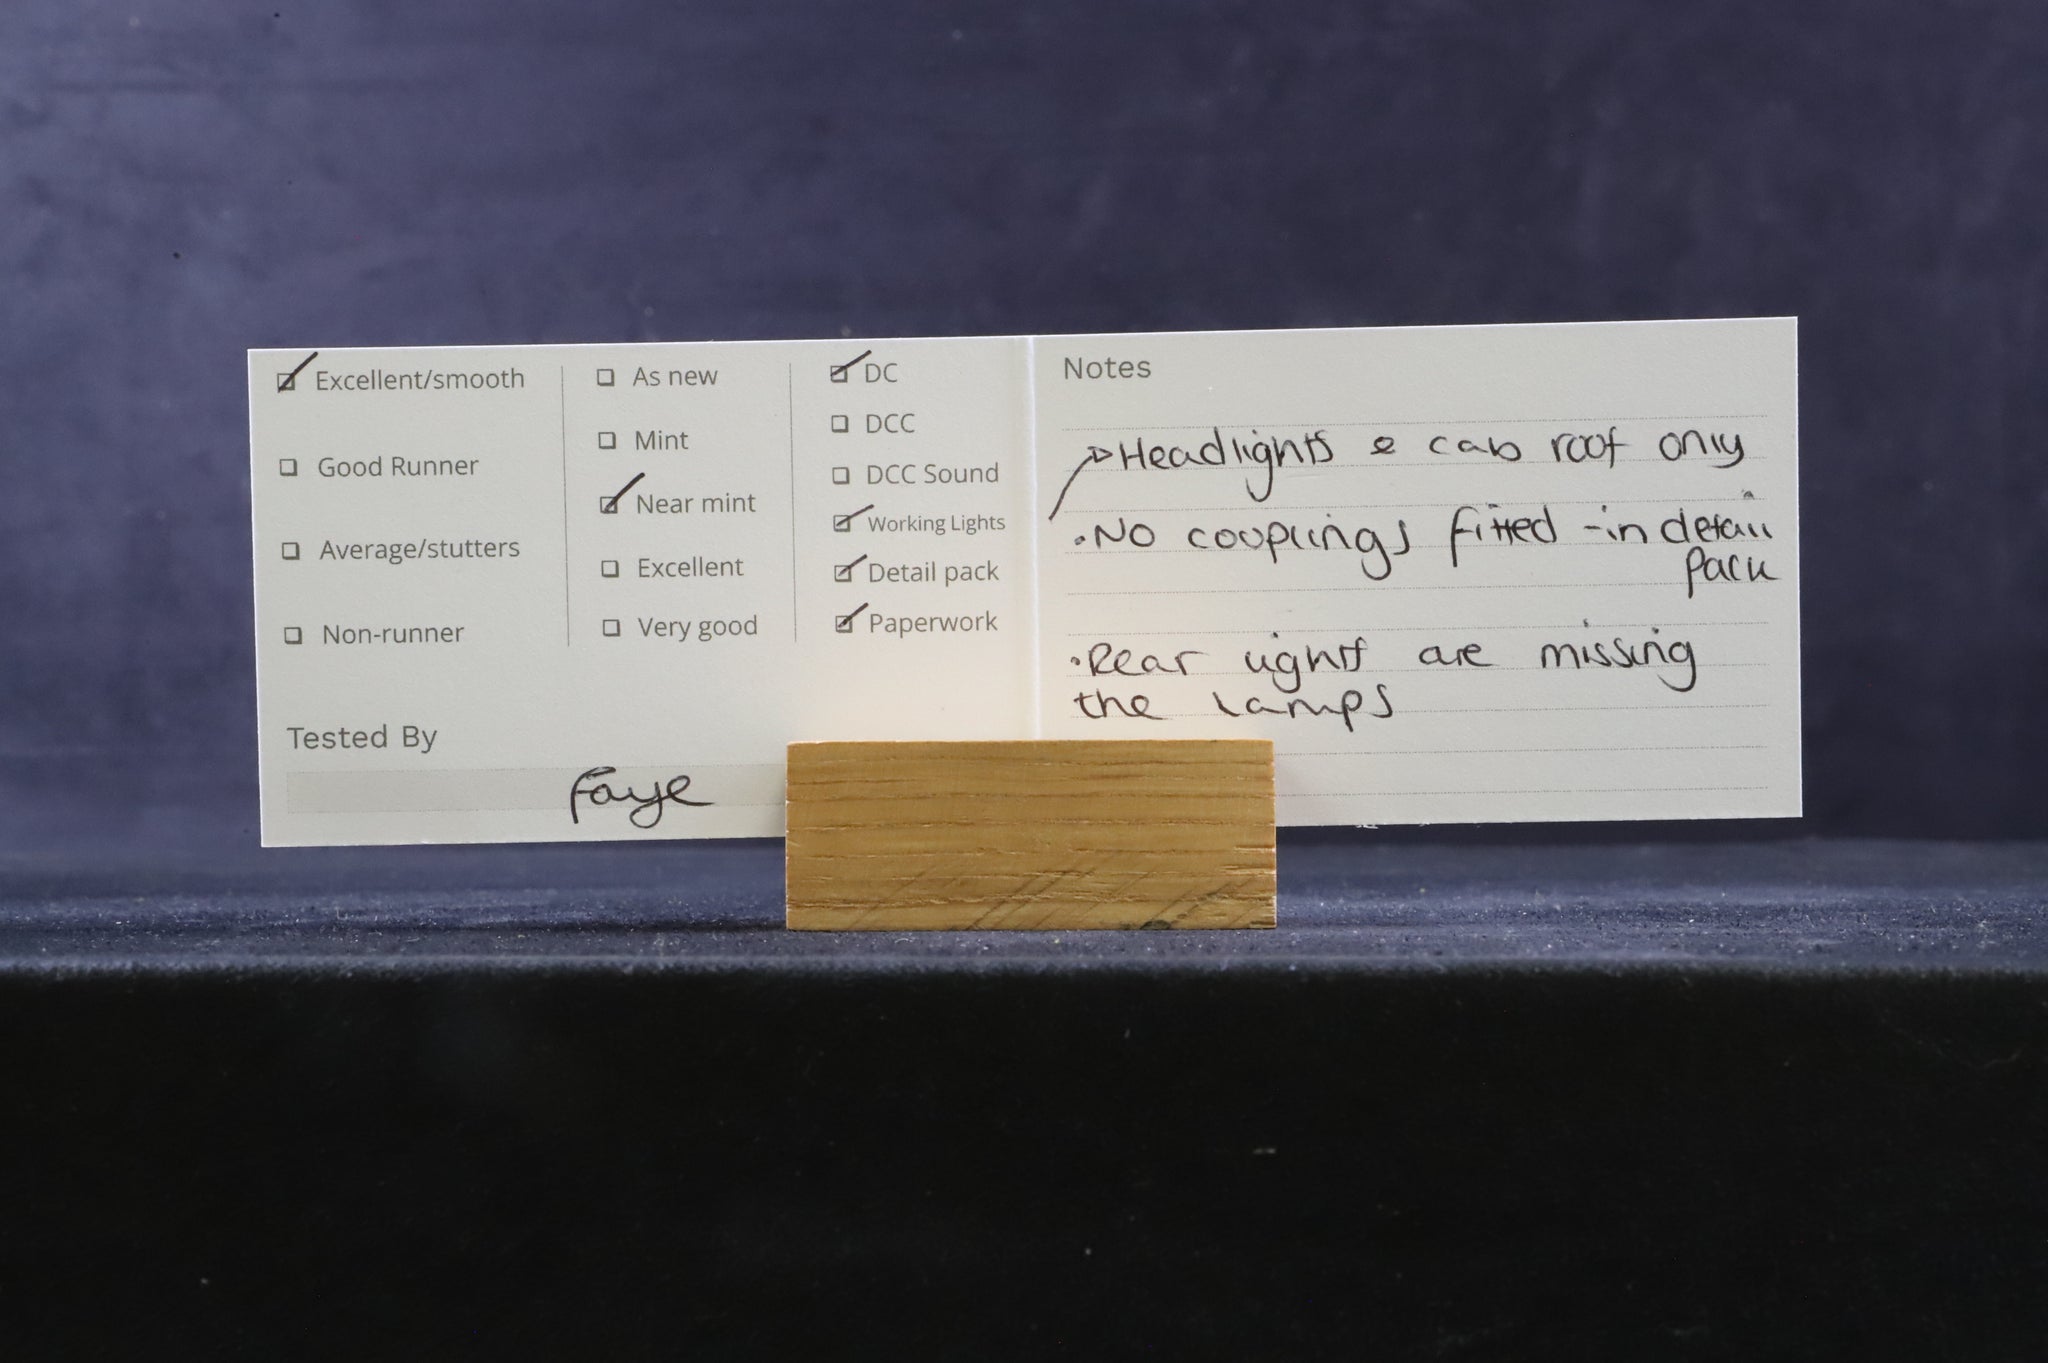 Excellent/smooth
Good Runner
Average/stutters
Non-runner
As new
Mint
Near mint
Excellent
Very good
DC
DCC
DCC Sound
Working Lights
Detail pack
Paperwork
Tested By
Faye
Notes
Headlights & cab roof only
• No couplings fitted - in detail
pack
• Rear lights are missing
the lamps